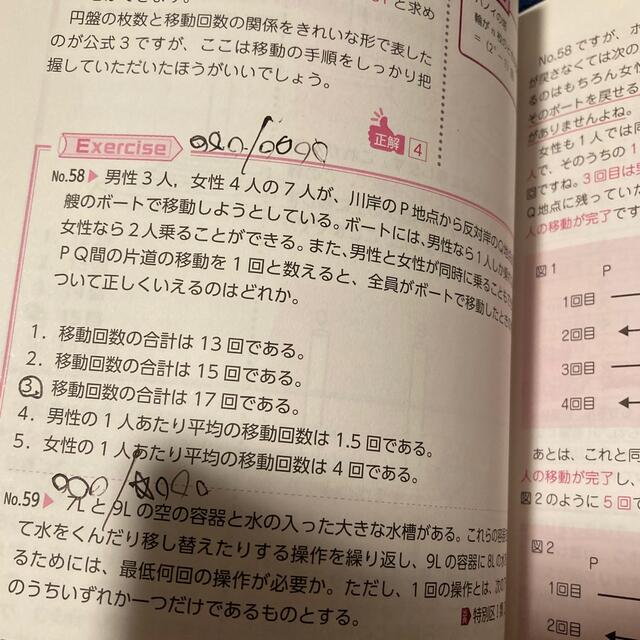 と求め
円盤の枚数と移動回数の関係をきれいな形で表した
のが公式3ですが、ここは移動の手順をしっかり把
握していただいたほうがいいでしょう。
正解 4
Exercise
No.58 ▶ 男性3人，女性4人の7人が、川岸のP地点から反対岸の
艘のボートで移動しようとしている。ボートには、男性なら1人しか
女性なら2人乗ることができる。また、男性と女性が同時に乗ること
PQ間の片道の移動を1回と数えると、全員がボートで移動したとき
ついて正しくいえるのはどれか。
1. 移動回数の合計は13回である。
2. 移動回数の合計は15回である。
3. 移動回数の合計は17回である。
4. 男性の1人あたり平均の移動回数は1.5回である。
5. 女性の1人あたり平均の移動回数は4回である。
No.59 ▶ 7Lと9Lの空の容器と水の入った大きな水槽がある。これらの容器
て水をくんだり移し替えたりする操作を繰り返し、9Lの容器に8Lの
るためには、最低何回の操作が必要か。ただし、1回の操作とは、次の
のうちいずれか一つだけであるものとする。
特別区Ⅰ類
No.58ですが、ボ
が戻さなくては次の
るのはもちろん女性
そのボートを戻せる
がありませんよね。
女性も1人では同
人で、そのうちの1
図ですね。3回目は男
Q地点に残ってい
人の移動が完了です
図1 P
1回目
2回目
3回目
4回目
あとは、これと同
人の移動が完了し、
図2のように5回で
図2
P
1回目
2回目